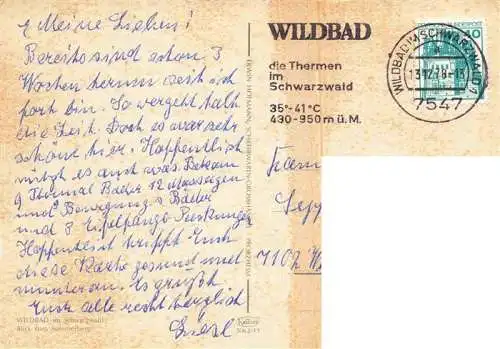 Meine Lieben!
Bereits sind schon 3
Wochen herum seit ich
fort bin. So vergeht halt
die Zeit. Doch es war sehr
schöne hier. Hoffentlich
nützt es auch was. Bekam
9 Thermal Bäder 12 Massagen
und Bewegungs Bäder
und 8 Fango Packungen
Hoffentlich trifft Euch
diese Karte gesund und
munter an. Es grüßt
Euch alle recht herzlich
Liesl
WILDBAD im Schwarzwald
Blick vom Sommerberg
WILDBAD
die Thermen
im
Schwarzwald
35°-41°C
430-950m ü.M.
WILDBAD IM SCHWARZWALD
13.12.78-13
7547
Sepp
7107